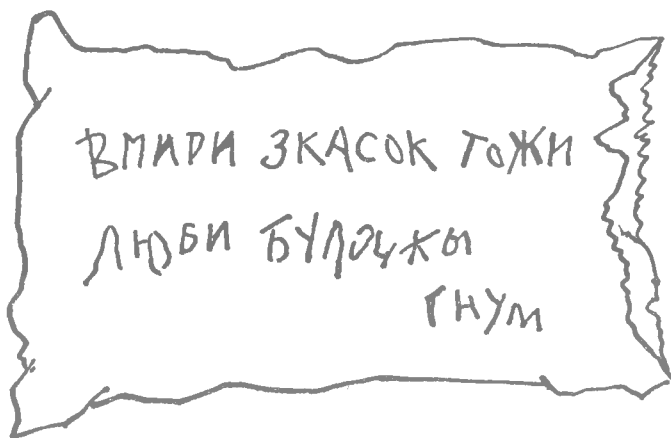 ВМИРИ ЗКАСОК ТОЖИ
ЛЮБИ БУЛОЦКЫ
ГНУМ